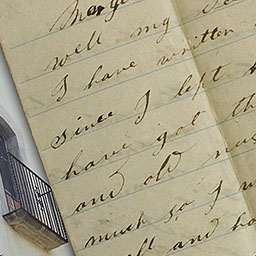 well my
I have written
since I left
have got th
and old
much so I w
and ho